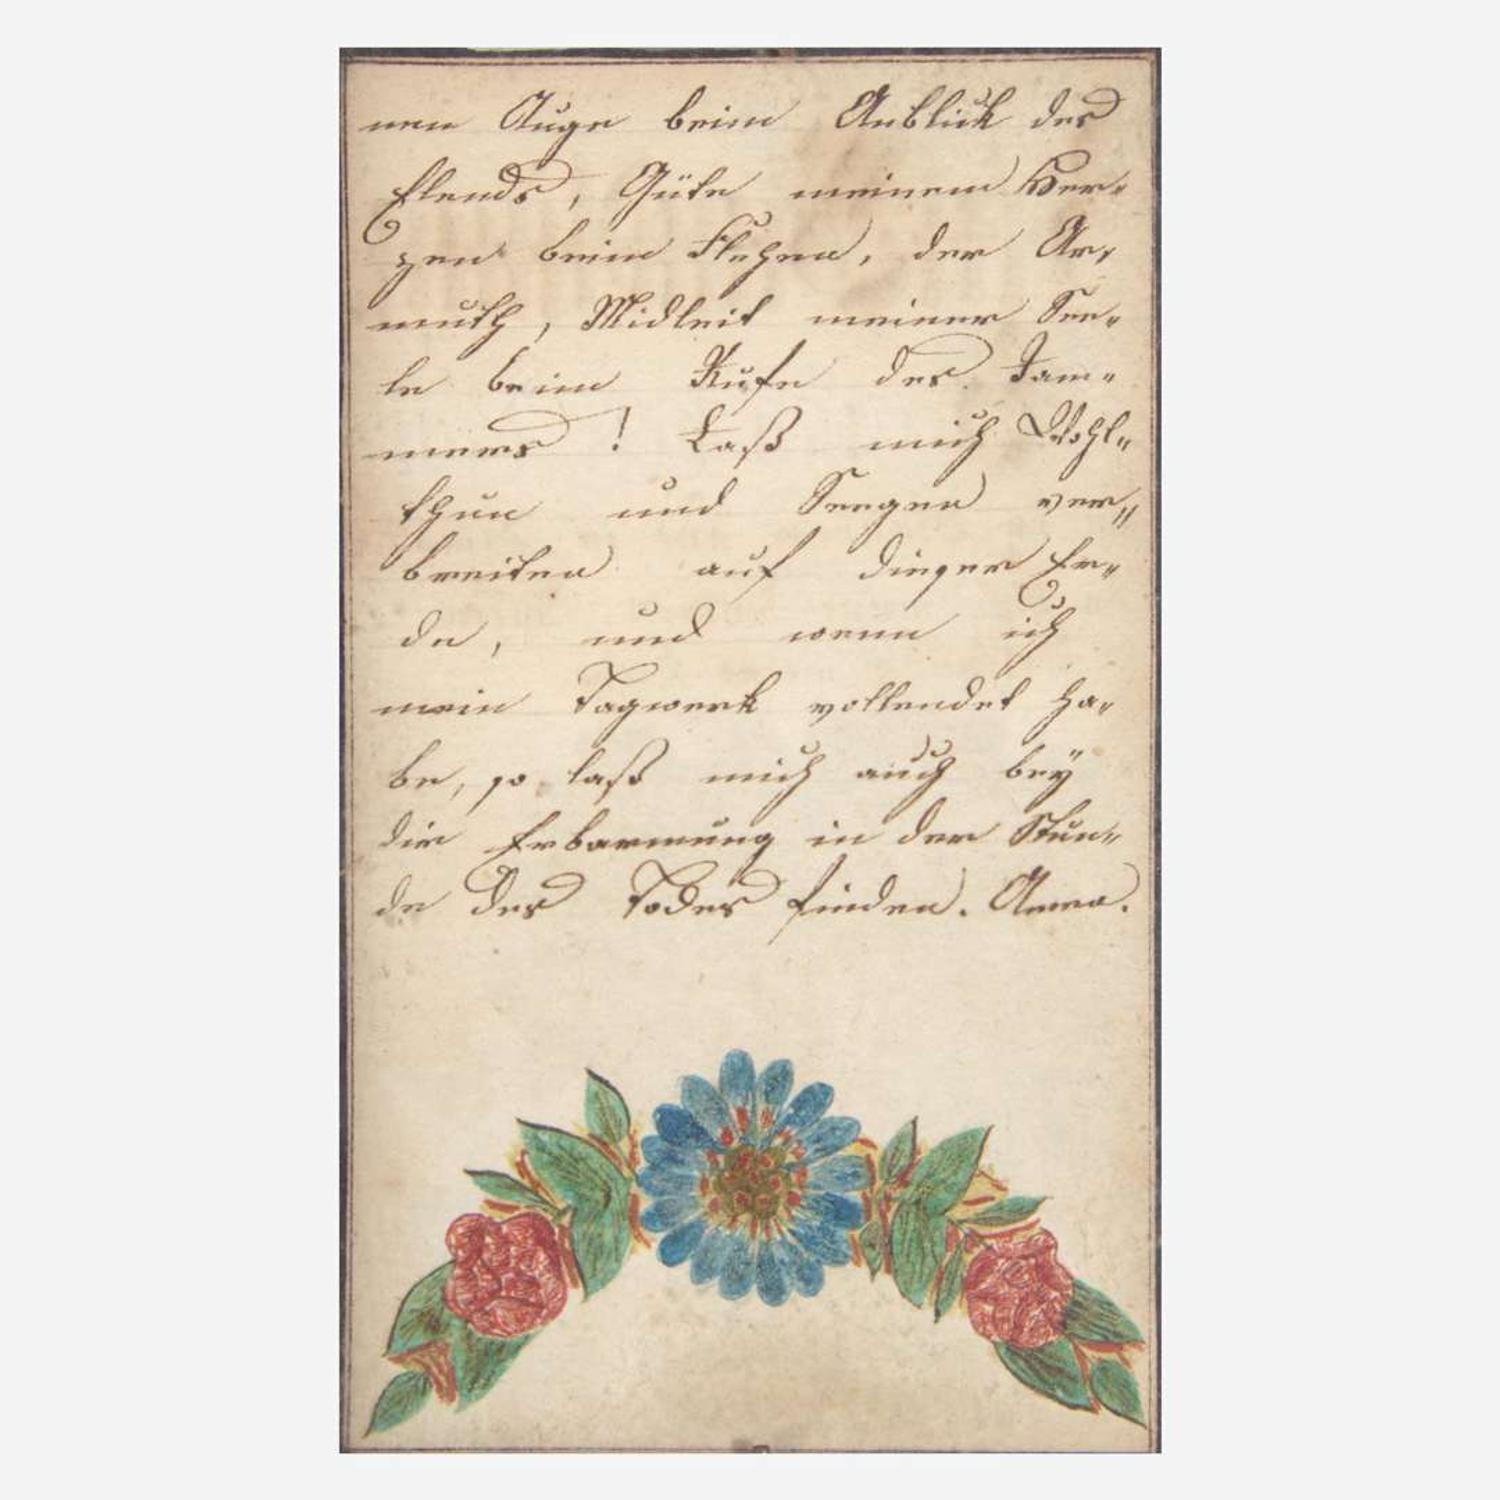 nen Auge beim Anblick des
Elends, Güte meinem Her-
zen beim Flehen, der Ar-
muth, Midleit meiner See-
le beim Rufe des Jam-
mers! Laß mich Wohl-
thun und Seegen ver-
breiten auf dieser Er-
de, und wenn ich
mein Tagwerk vollendet ha-
be, so laß mich auch bey
dir Erbarmung in der Stun-
de des Todes finden. Amen.